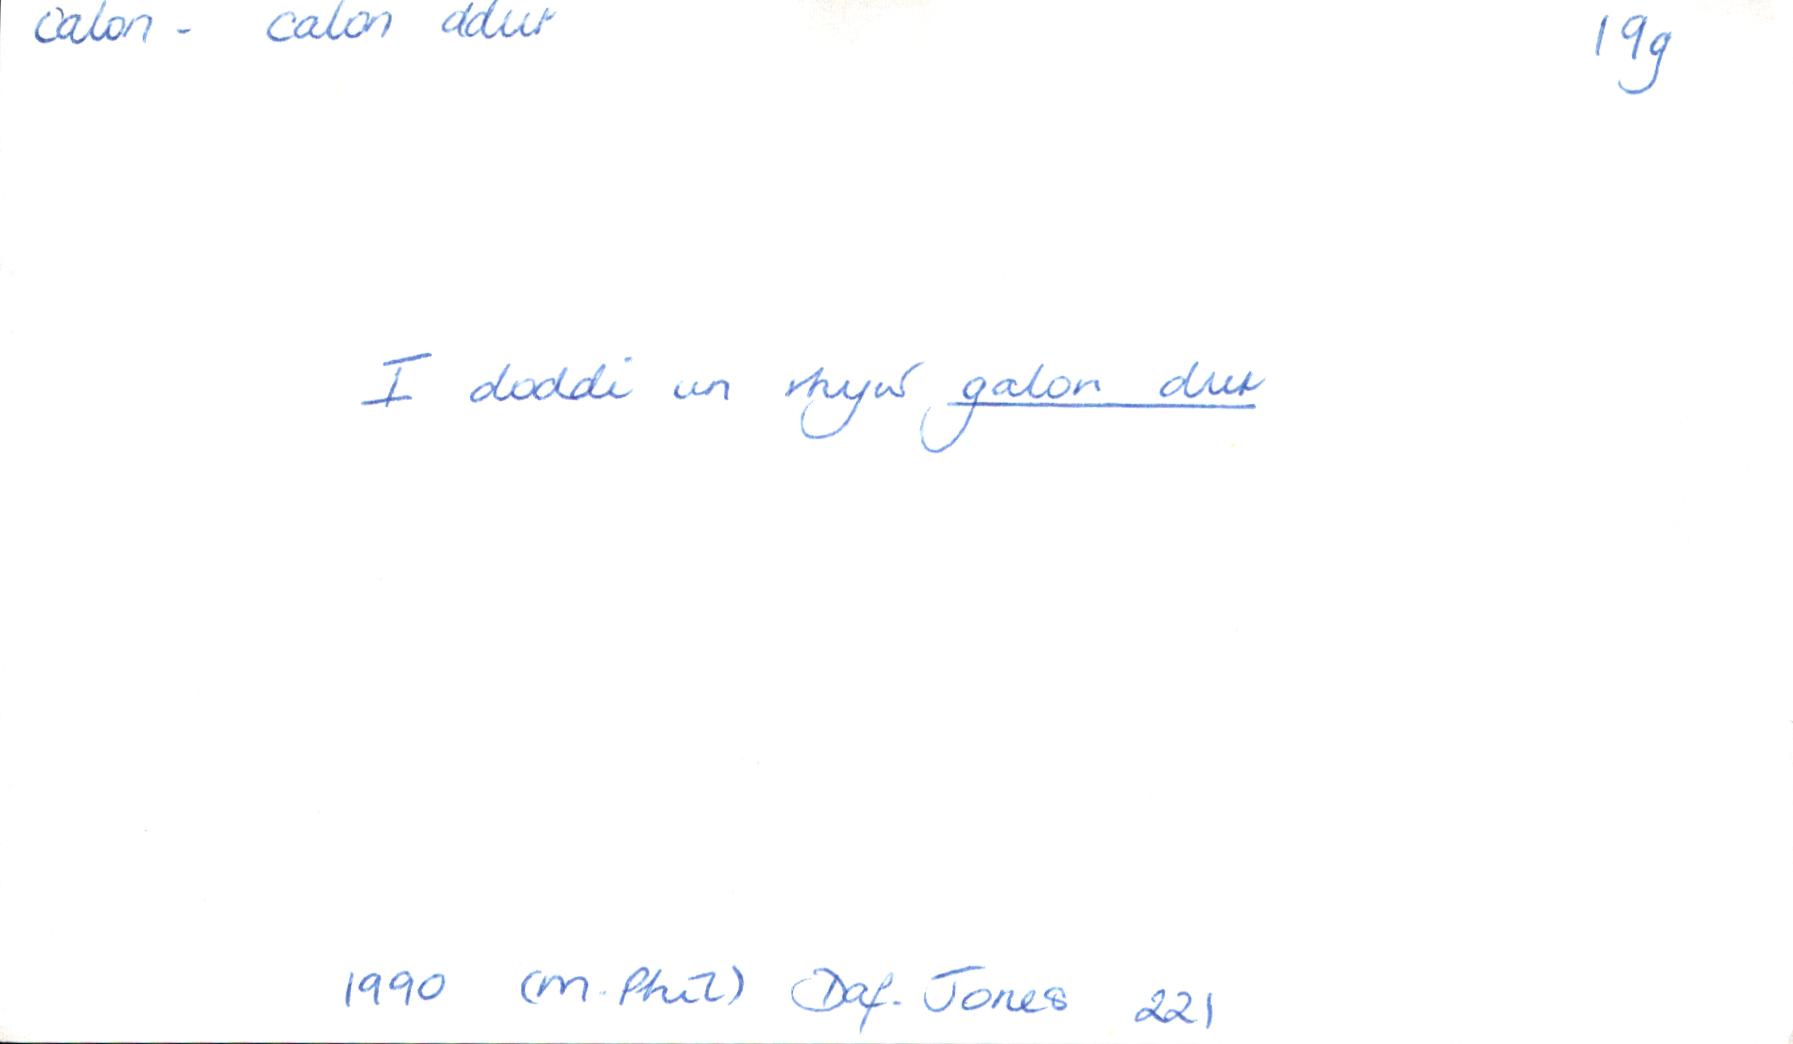 calon - calon ddur 19g
I doddi un rhyw galon dur
1990 (M.Phil) Daf. Jones 221